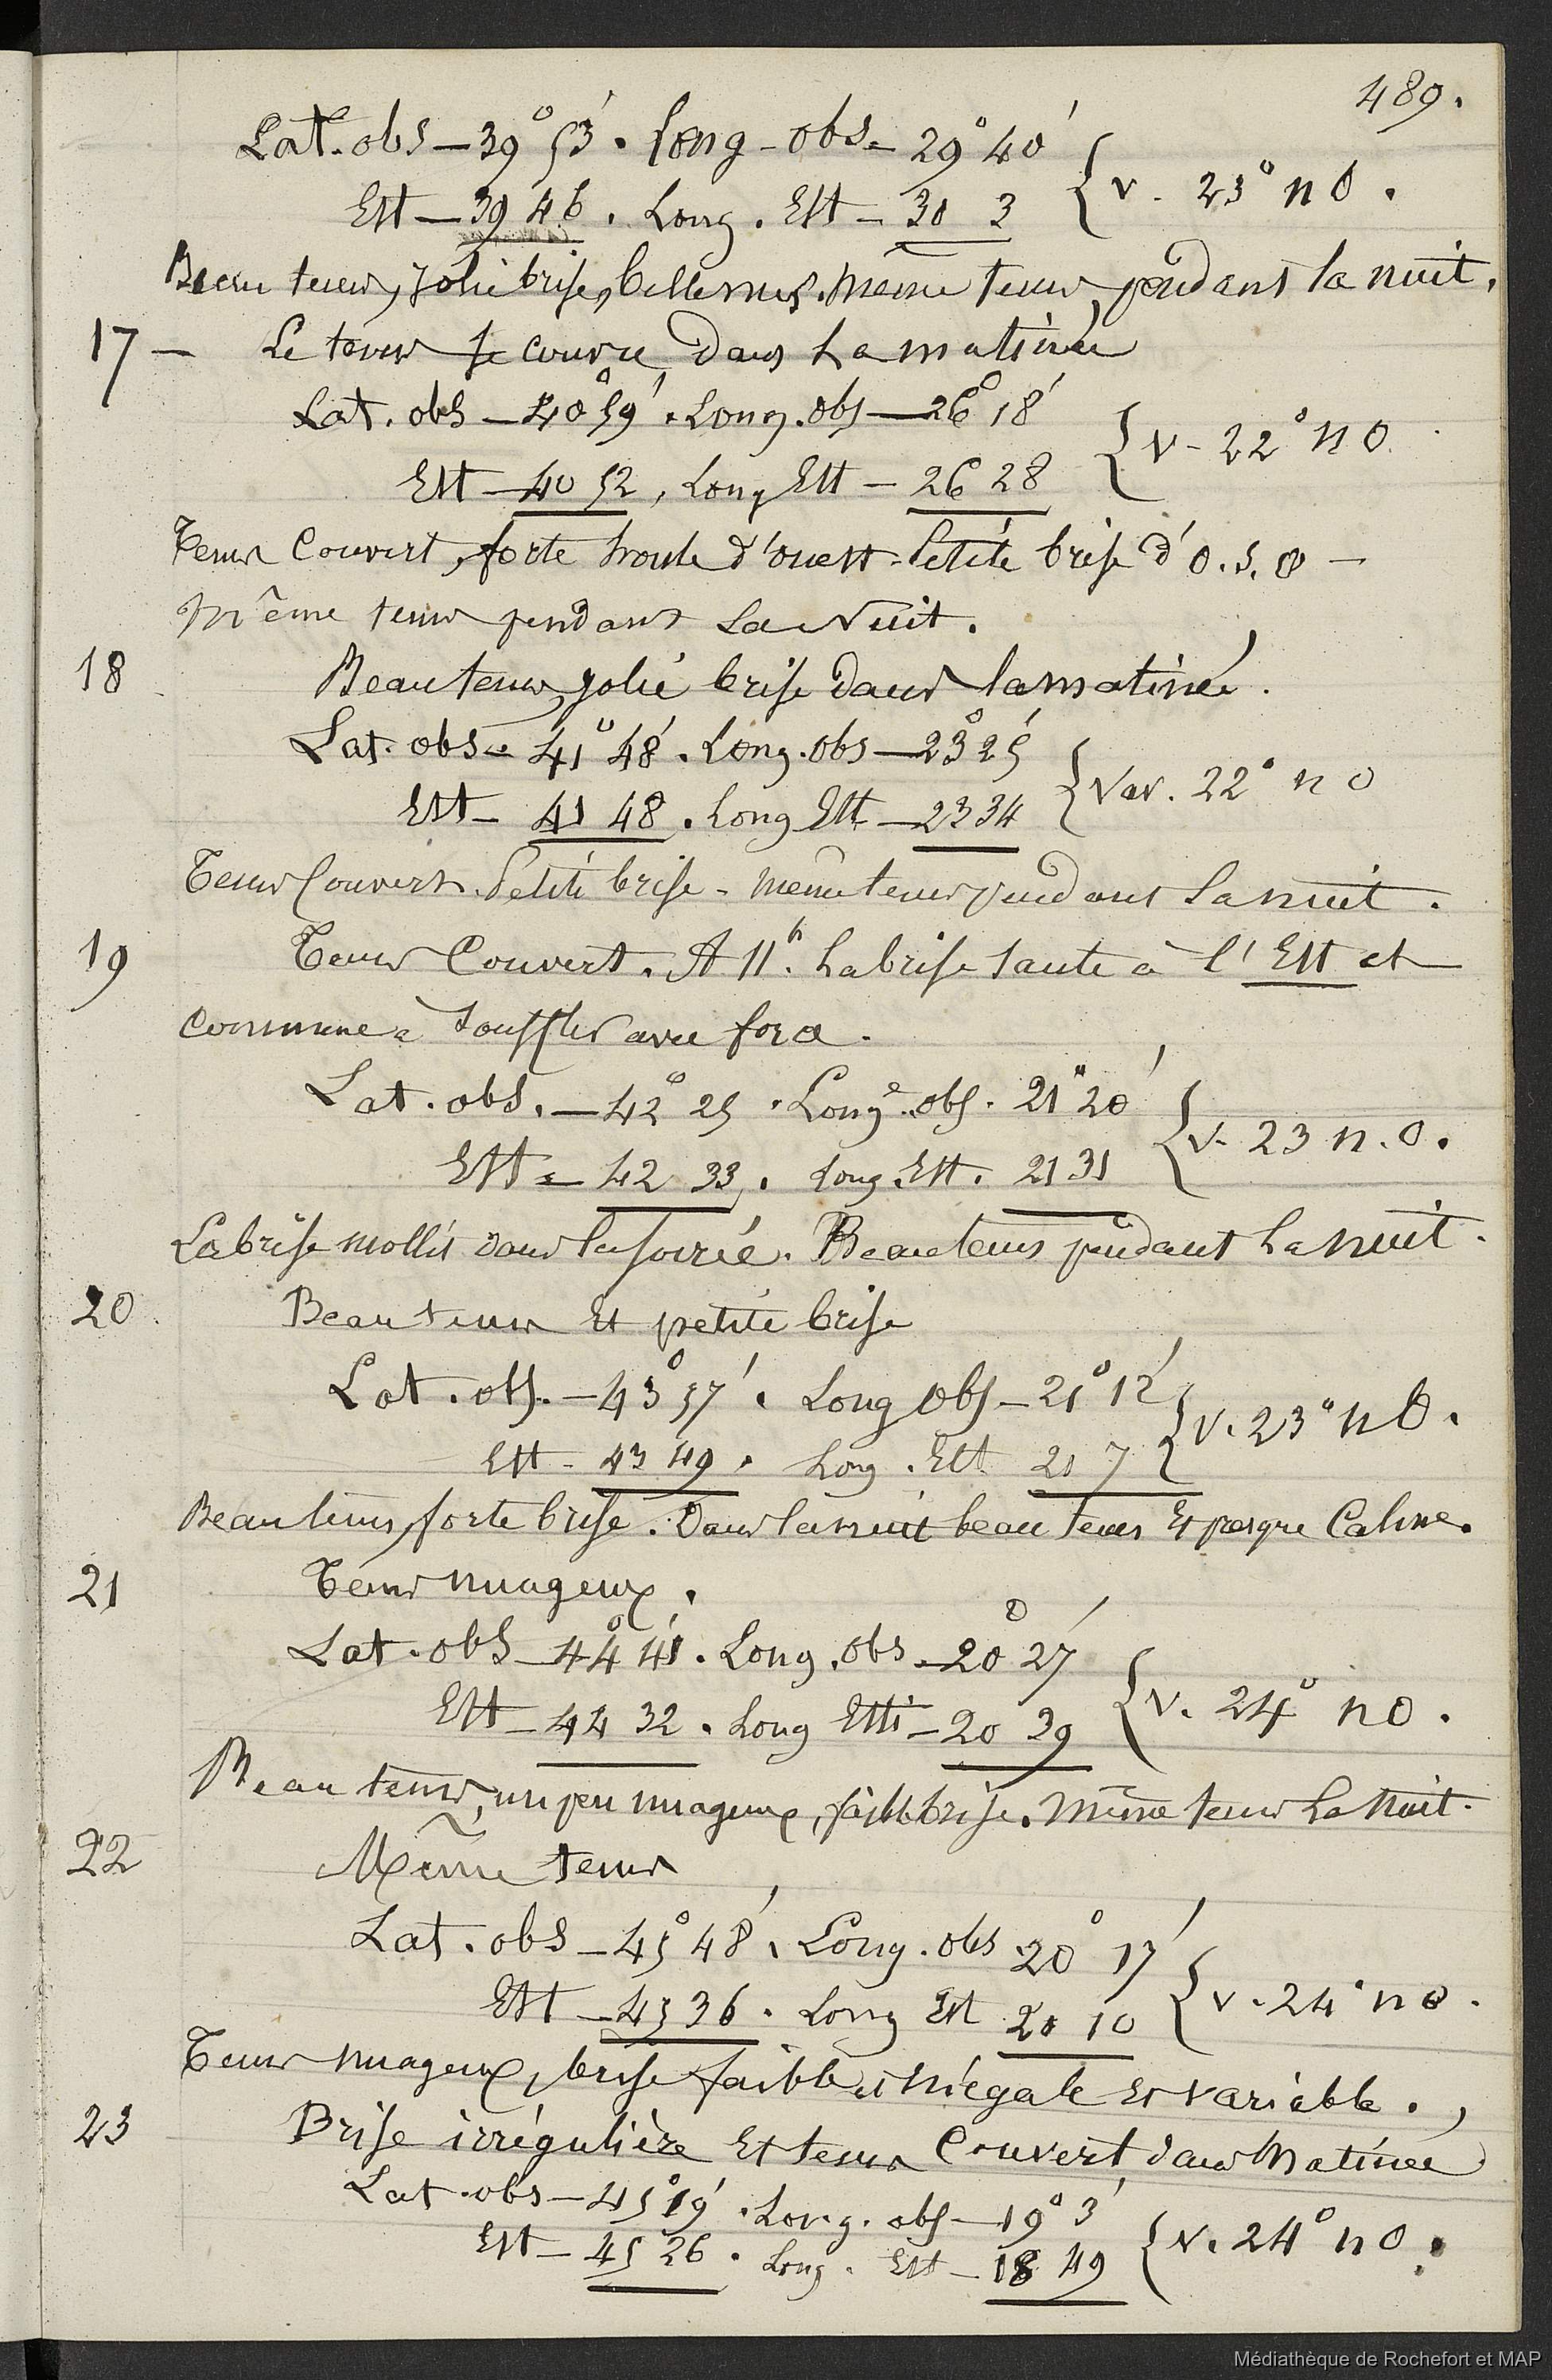 489.
Lat. obs — 39° 53'. Long - obs - 29° 40'
Est — 39 46. Long. Est — 30 3 { v - 23° n O.
Beau tems, jolie brise, belle mer. Même tems pendant la nuit.
17 — Le tems se couvre dans la matinée
Lat. obs — 40° 59'. Long. obs — 26° 18'
Est — 40 52, Long Est — 26 28 { v - 22° n O.
Tems couvert, forte houle d'ouest. Petite brise d'O. S. O —
Même tems pendant la Nuit.
18 Beau tems, jolie brise dans la matinée.
Lat. obs - 41° 48'. Long. obs — 23° 25'
Est — 41 48. Long Est — 23 34 { Var. 22° n O
Tems Couvert. Petite brise - même tems pendant la nuit.
19 Tems Couvert. A 11h. la brise saute à l'Est et
commence à souffler avec force.
Lat. obs. — 42° 25. Longe. obs. 21° 20'
Est — 42 33. Long. Est. 21 31 { v. 23 n. O.
La brise mollit dans la soirée. Beau tems pendant la nuit.
20. Beau tems et petite brise
Lat. obs. — 43° 57'. Long Obs — 21° 12'
Est — 43 49. Long. Est 21 7 { v. 23° n O.
Beau tems, forte brise. Dans la nuit beau tems et presque Calme.
21 Tems nuageux.
Lat. obs — 44° 41'. Long. obs — 20° 27'
Est — 44 32. Long Est — 20 39 { v. 24° n O.
Beau tems, un peu nuageux, faible brise. Même tems la nuit.
22 Même tems
Lat. obs — 45° 48'. Long. obs 20° 17'
Est — 45 36. Long Est 20 10 { v. 24° n O.
Tems nuageux, brise faible, inégale et variable.
23 Brise irrégulière et tems Couvert dans Matinée
Lat. obs — 45° 19'. Long. obs — 19° 3'
Est — 45 26. Long. Est — 18 49 { v. 24° n O.
Médiathèque de Rochefort et MAP